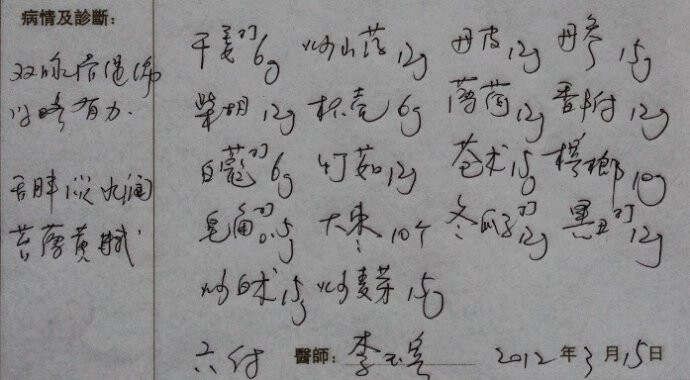 病情及診斷：
双脉
有力.
舌胖淡 润
苔薄黄腻
干姜 6g 炒山药 12g 丹皮 12g 丹参 15g
柴胡 12g 枳壳 6g 薄荷 12g 香附 12g
白蔻 6g 竹茹 12g 苍术 15g 槟榔 10g
皂角 0.5g 大枣 10个 冬瓜子 12g 黑丑 12g
炒白术 15g 炒麦芽 15g
六付 醫師: 李 2012年3月15日